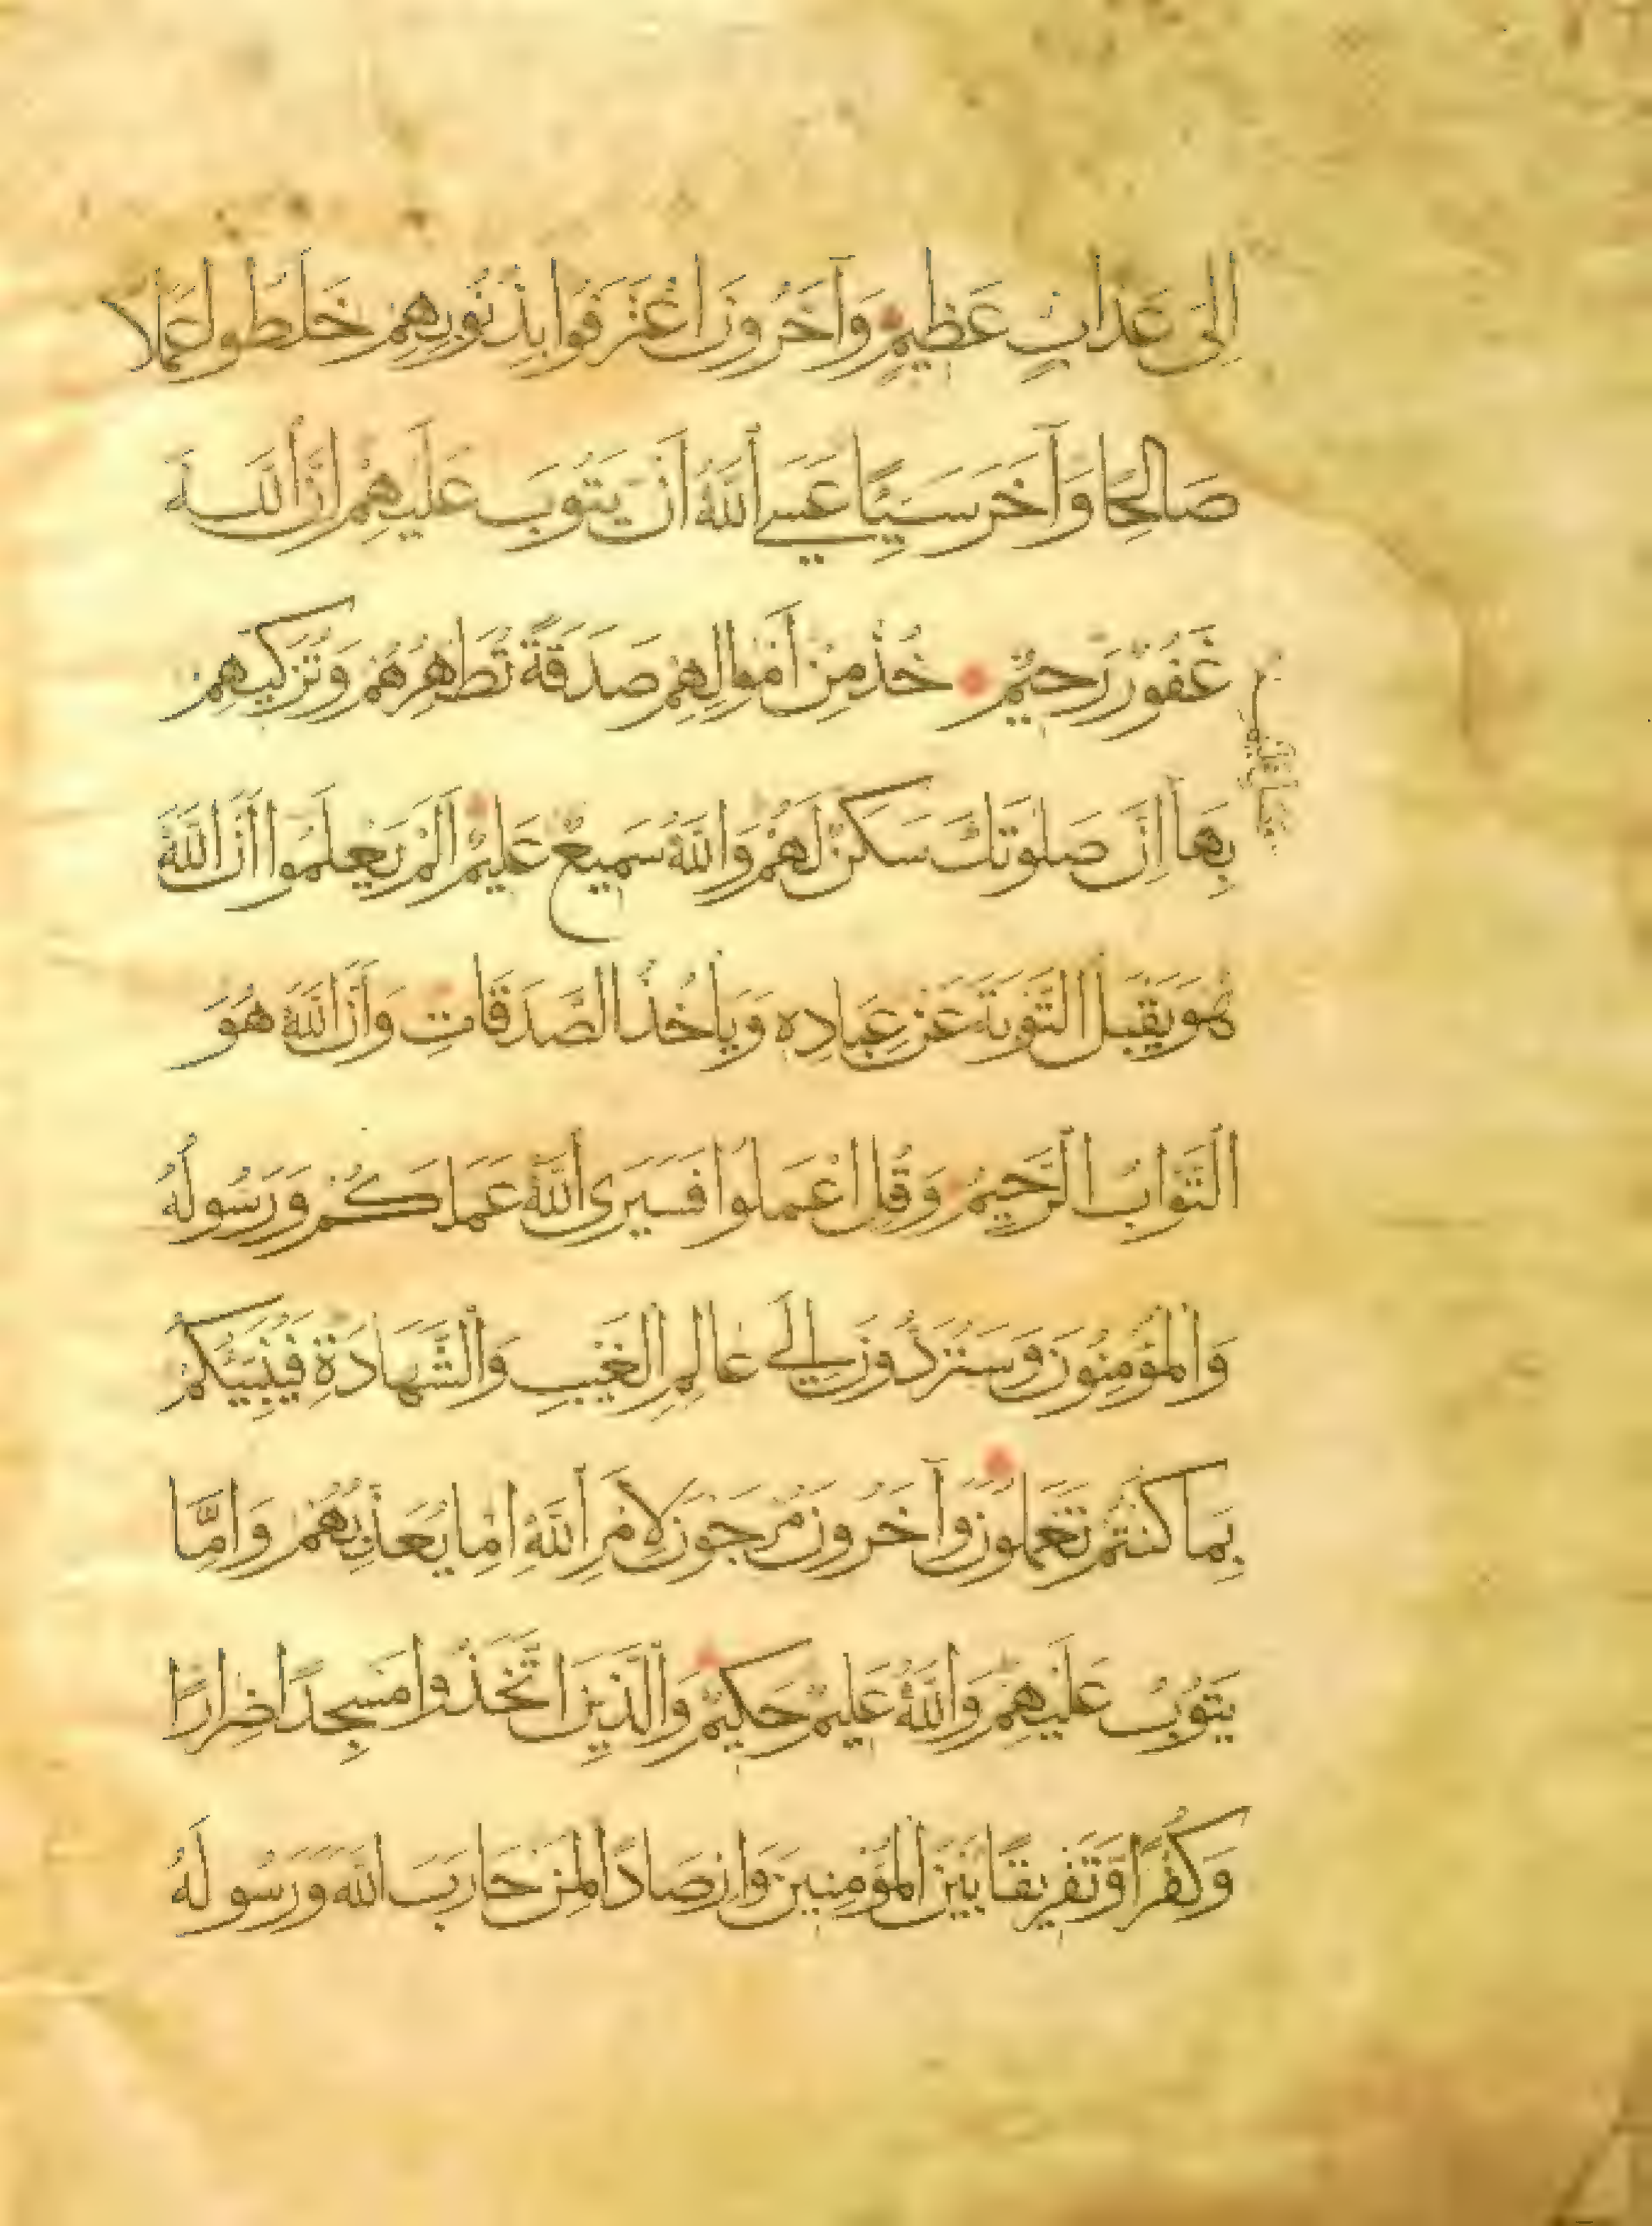 اِلَى عَذَابٍ عَظِيمٍ وَآخَرُونَ اعْتَرَفُوا بِذُنُوبِهِمْ خَلَطُوا عَمَلًا
صَالِحًا وَآخَرَ سَيِّئًا عَسَى اللّٰهُ أَنْ يَتُوبَ عَلَيْهِمْ إِنَّ اللّٰهَ
غَفُورٌ رَحِيمٌ خُذْ مِنْ أَمْوَالِهِمْ صَدَقَةً تُطَهِّرُهُمْ وَتُزَكِّيهِمْ
بِهَا إِنَّ صَلٰوتَكَ سَكَنٌ لَهُمْ وَاللّٰهُ سَمِيعٌ عَلِيمٌ اَلَمْ يَعْلَمُوا أَنَّ اللّٰهَ
هُوَ يَقْبَلُ التَّوْبَةَ عَنْ عِبَادِهِ وَيَأْخُذُ الصَّدَقَاتِ وَأَنَّ اللّٰهَ هُوَ
التَّوَّابُ الرَّحِيمُ وَقُلِ اعْمَلُوا فَسَيَرَى اللّٰهُ عَمَلَكُمْ وَرَسُولُهُ
وَالْمُؤْمِنُونَ وَسَتُرَدُّونَ اِلَى عَالِمِ الْغَيْبِ وَالشَّهَادَةِ فَيُنَبِّئُكُمْ
بِمَا كُنْتُمْ تَعْمَلُونَ وَآخَرُونَ مُرْجَوْنَ لِأَمْرِ اللّٰهِ اِمَّا يُعَذِّبُهُمْ وَاِمَّا
يَتُوبُ عَلَيْهِمْ وَاللّٰهُ عَلِيمٌ حَكِيمٌ وَالَّذِينَ اتَّخَذُوا مَسْجِدًا ضِرَارًا
وَكُفْرًا وَتَفْرِيقًا بَيْنَ الْمُؤْمِنِينَ وَاِرْصَادًا لِمَنْ حَارَبَ اللّٰهَ وَرَسُولَهُ